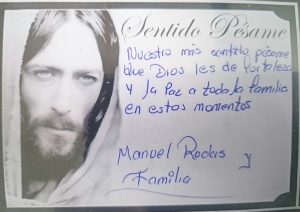 Sentido Pésame
Nuestro más sentido pésame
que Dios les de fortaleza
y la Paz a toda la familia
en estos momentos
Manuel Rodas y
Familia